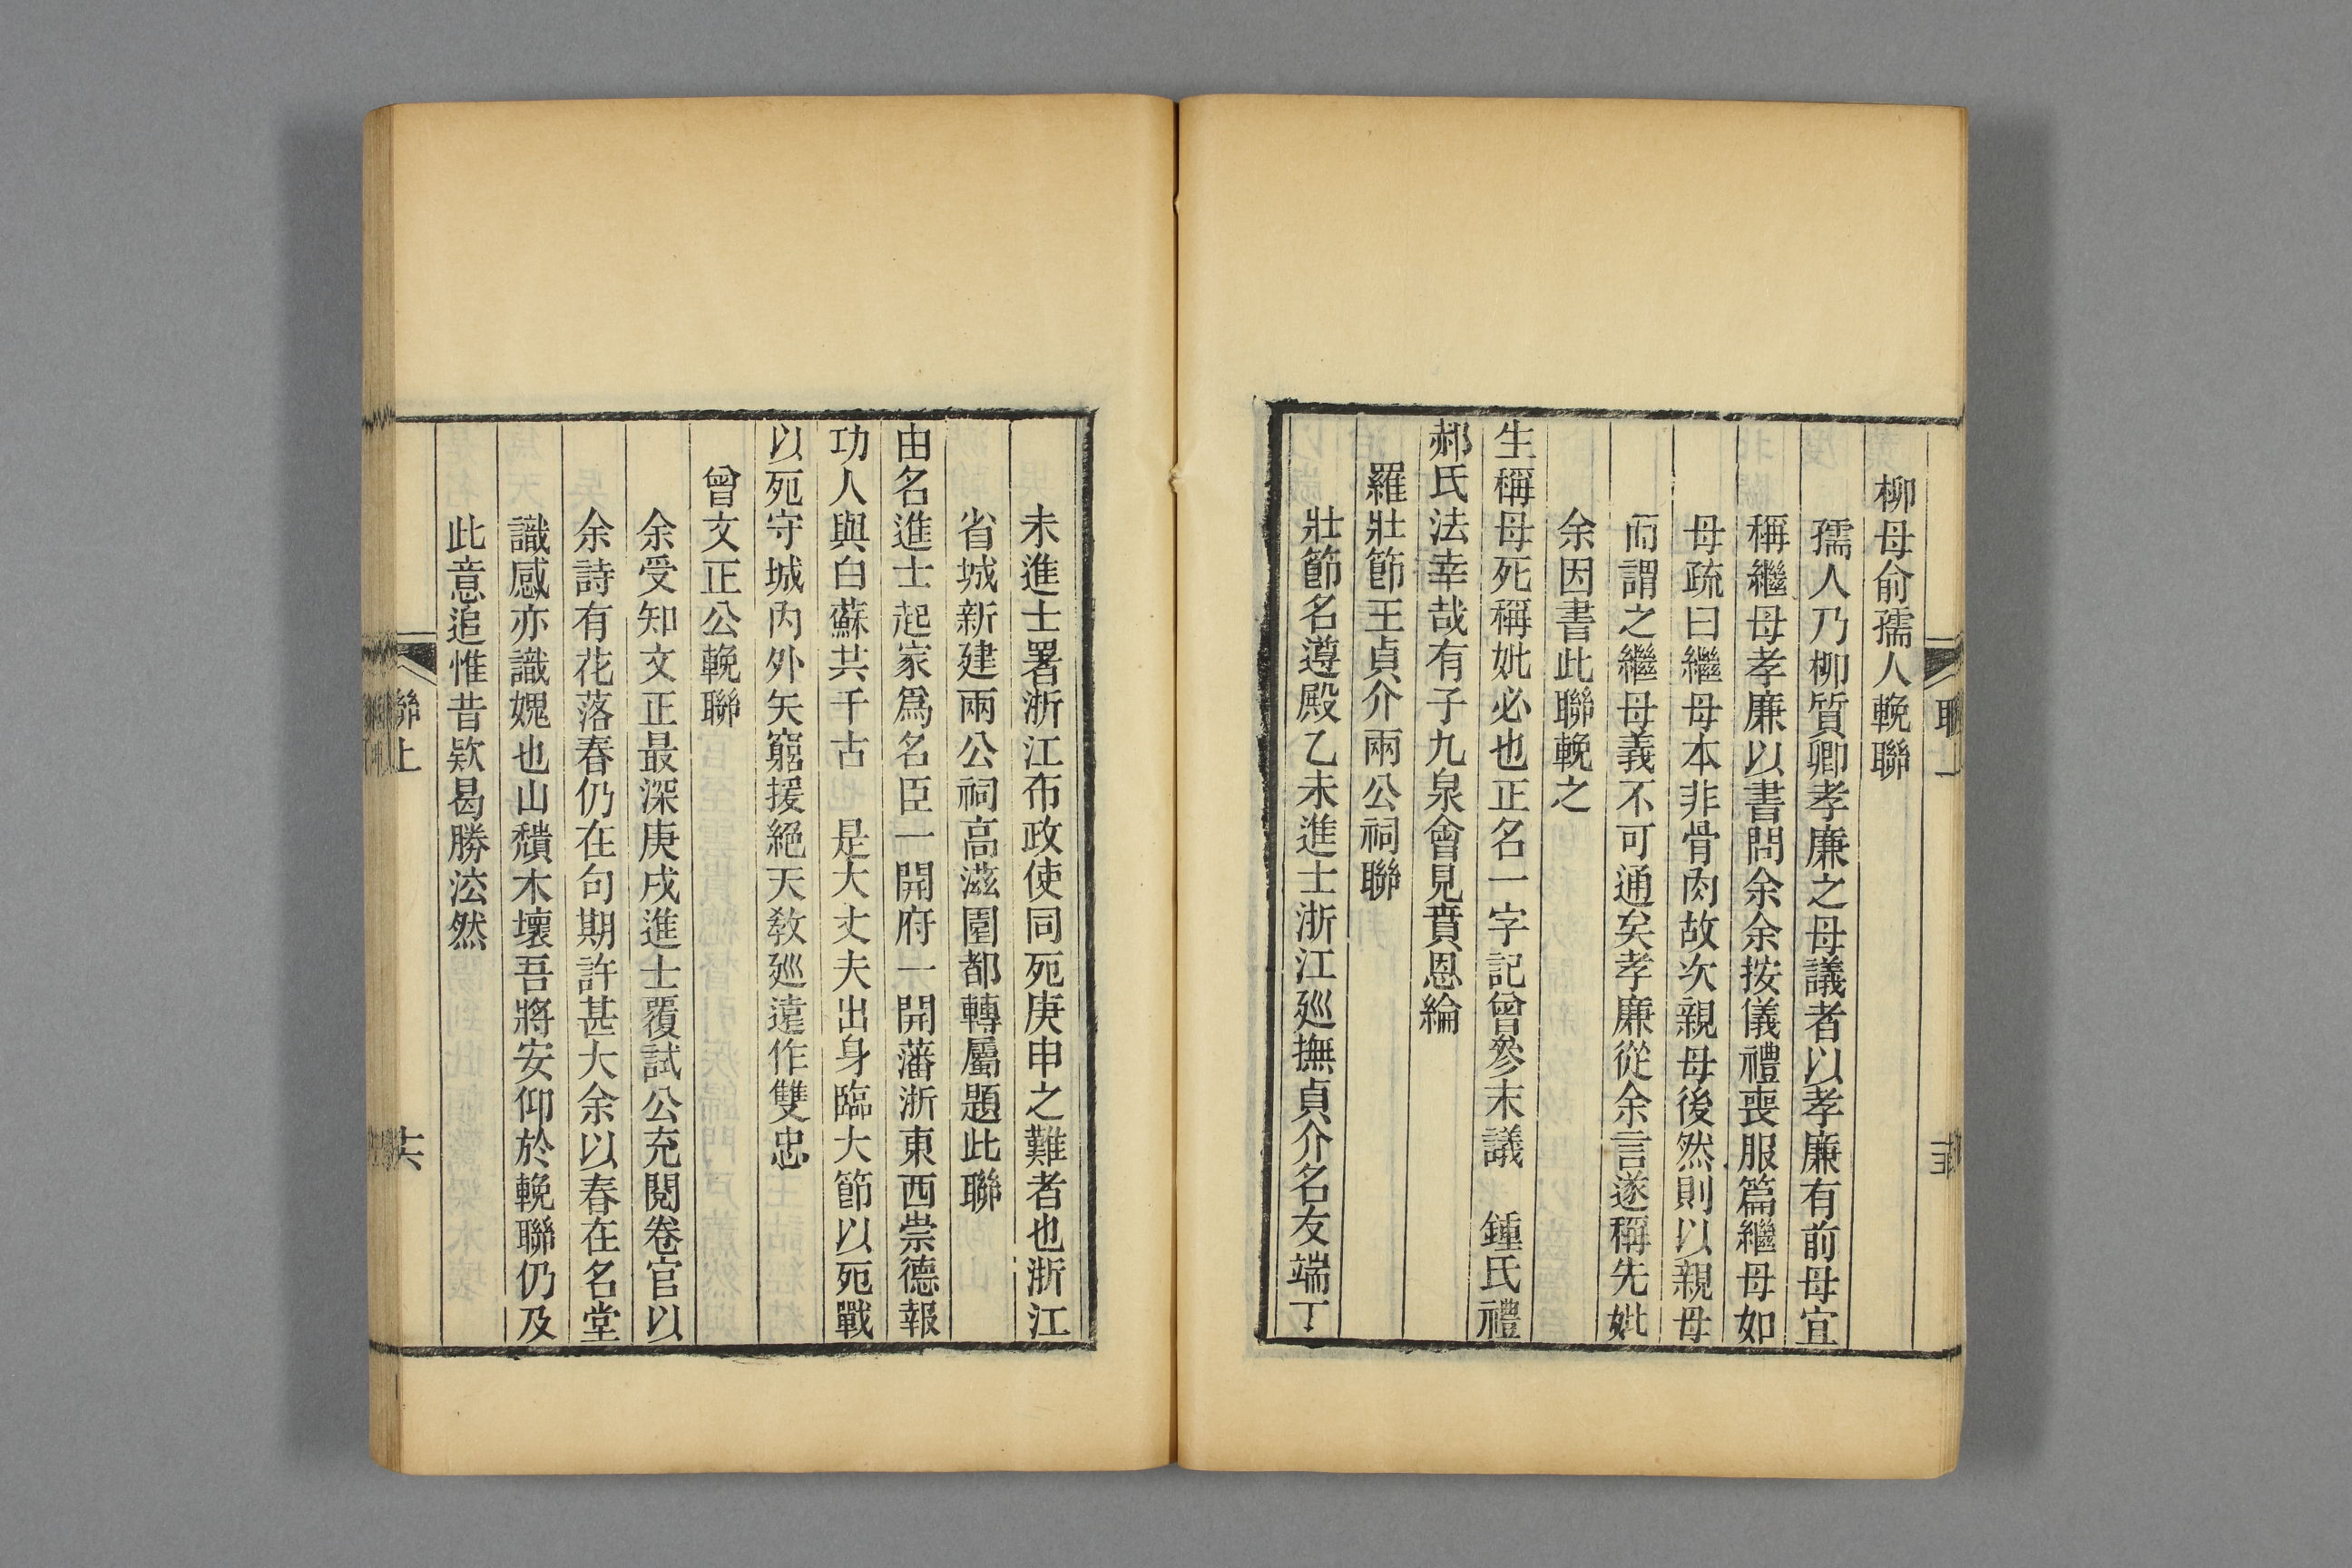 柳母俞孺人輓聯
孺人乃柳質卿孝廉之母議者以孝廉有前母宜
稱繼母孝廉以書問余余按儀禮喪服篇繼母如
母疏曰繼母本非骨肉故次親母後然則以親母
而謂之繼母義不可通矣孝廉從余言遂稱先妣
余因書此聯輓之
生稱母死稱妣必也正名一字記曾參末議 鍾氏禮
郝氏法幸哉有子九泉會見賁恩綸
羅壯節王貞介兩公祠聯
壯節名遵殿乙未進士浙江廵撫貞介名友端丁
未進士署浙江布政使同死庚申之難者也浙江
省城新建兩公祠高滋園都轉屬題此聯
由名進士起家爲名臣一開府一開藩浙東西崇德報
功人與白蘇共千古 是大丈夫出身臨大節以死戰
以死守城內外矢窮援絕天敎廵遠作雙忠
曾文正公輓聯
余受知文正最深庚戌進士覆試公充閱卷官以
余詩有花落春仍在句期許甚大余以春在名堂
識感亦識媿也山頹木壞吾將安仰於輓聯仍及
此意追惟昔欵曷勝泫然
聯上
六